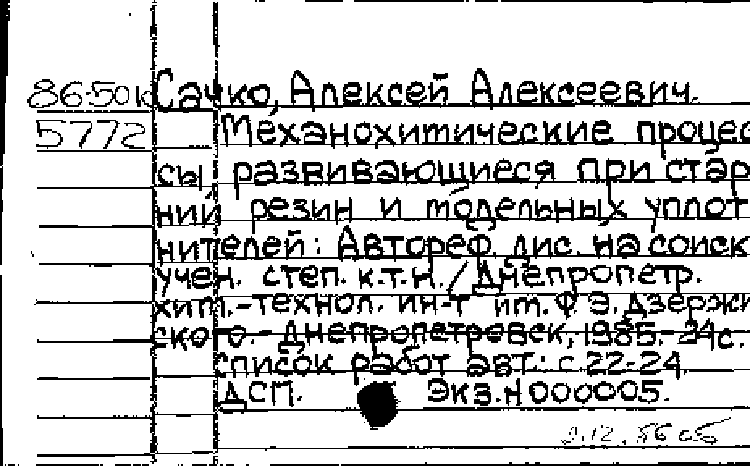 86-50к Сачко, Алексей Алексеевич.
5772 Механохимические процес
сы, развивающиеся при старе
ний резин и модельных уплот
нителей: Автореф. дис. на соиск.
учен. степ. к.т.н. / Днепропетр.
хим.-технол. ин-т им. Ф. Э. Дзержин
ского. - Днепропетровск, 1985. - 24с.
список работ авт.: с. 22-24.
ДСП. Экз.N 000005.